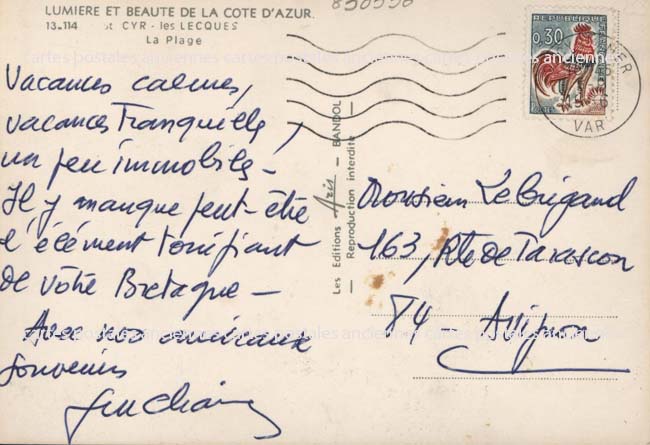 LUMIERE ET BEAUTE DE LA COTE D'AZUR
13.114 St CYR - les LECQUES
La Plage
Vacances calmes,
vacances tranquilles,
un peu immobiles -
Il y manque peut-être
l'élément tonifiant
de votre Bretagne -
Avec nos amicaux
souvenirs
Les Editions Aris - BANDOL
Reproduction interdite
REPUBLIQUE
0,30
VAR
Monsieur Lebrigand
163, Rte de Tarascon
84 - Avignon
cartes postales anciennes cartes postales anciennes cartes postales anciennes
cartes postales anciennes cartes postales anciennes cartes postales anciennes